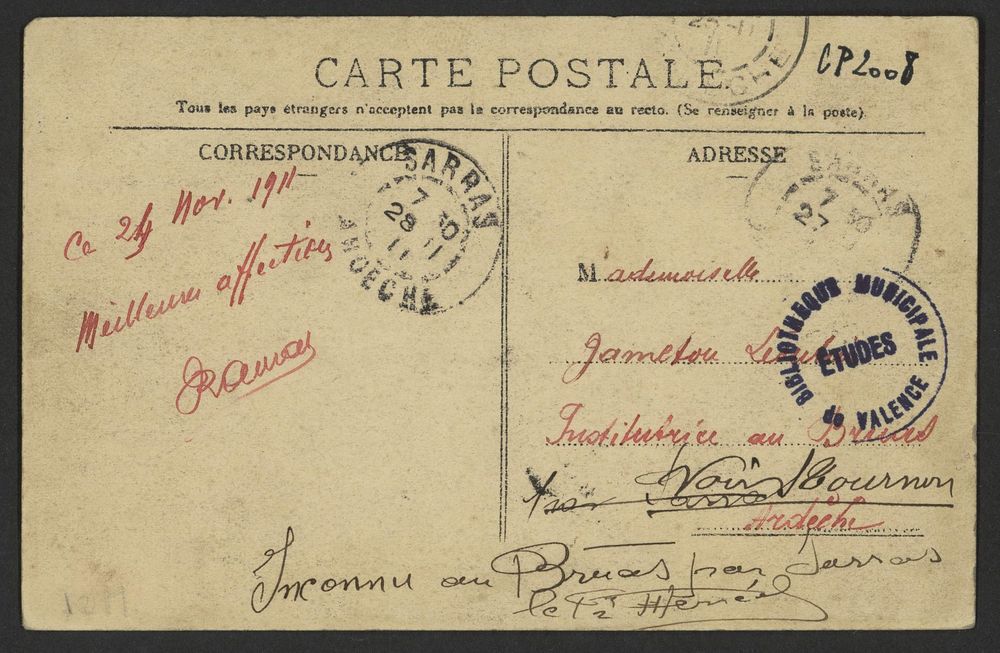 CP2008
CARTE POSTALE
Tous les pays étrangers n'acceptent pas la correspondance au recto. (Se renseigner à la poste).
CORRESPONDANCE
ADRESSE
SARRAS
7 30
28 11
11
ARDECHE
SARRAS
7 30
27
Ce 24 Nov. 1911
Meilleures affections
Mademoiselle
Jameton
Institutrice au Bruas
Voir Tournon
Ardèche
BIBLIOTHEQUE MUNICIPALE
ÉTUDES
de VALENCE
Inconnu au Bruas par Sarras
le